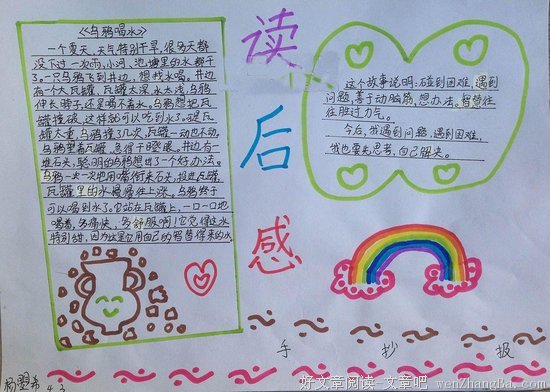 《乌鸦喝水》
一个夏天,天气特别干旱,很多天都
没下过一次雨,小河、池塘里的水都干
了。一只乌鸦飞到井边,想找水喝。井边
有一个大瓦罐,瓦罐太深,水太浅,乌鸦
伸长脖子,还是喝不着水。乌鸦想把瓦
罐撞破,这样就可以吃到水了。可是瓦
罐太重,乌鸦撞了几次,瓦罐一动也不动,
乌鸦望着瓦罐,急得干瞪眼。井边有一
堆石头,聪明的乌鸦想出了一个好办法。
乌鸦一次一次地用嘴衔来石头,投进瓦罐,瓦
罐里的水慢慢往上涨。乌鸦终于
可以喝到水了。它站在瓦罐上,一口一口地
喝着,多痛快,多舒服啊!它觉得这水
特别甜,因为这是它用自己的智慧得来的水。
读
后
感
这个故事说明:碰到困难,遇到
问题,善于动脑筋,想办法。智慧往
往胜过力气。
今后,我遇到问题,遇到困难,
我也要先思考,自己解决。
手 抄 报
4.3
好文章阅读-文章吧 wenZhangBa.com